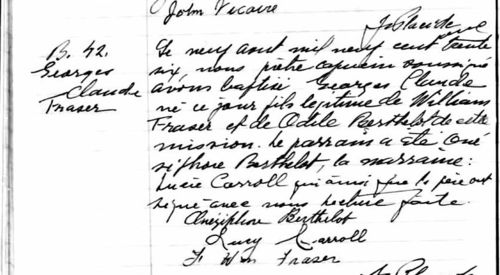 John Vicaire
B. 42.
Georges
Claude
Fraser
Le neuf août mil neuf cent trente
six, nous prêtre capucin soussigné
avons baptisé Georges Claude
né ce jour fils légitime de William
Fraser et de Odile Berthelot de cette
mission. Le parrain a été Oné
siphore Berthelot, la marraine:
Lucie Carroll qui ainsi que le père ont
signé avec nous lecture faite.
Onéziphore Berthelot
Lucy Carroll
Wm Fraser